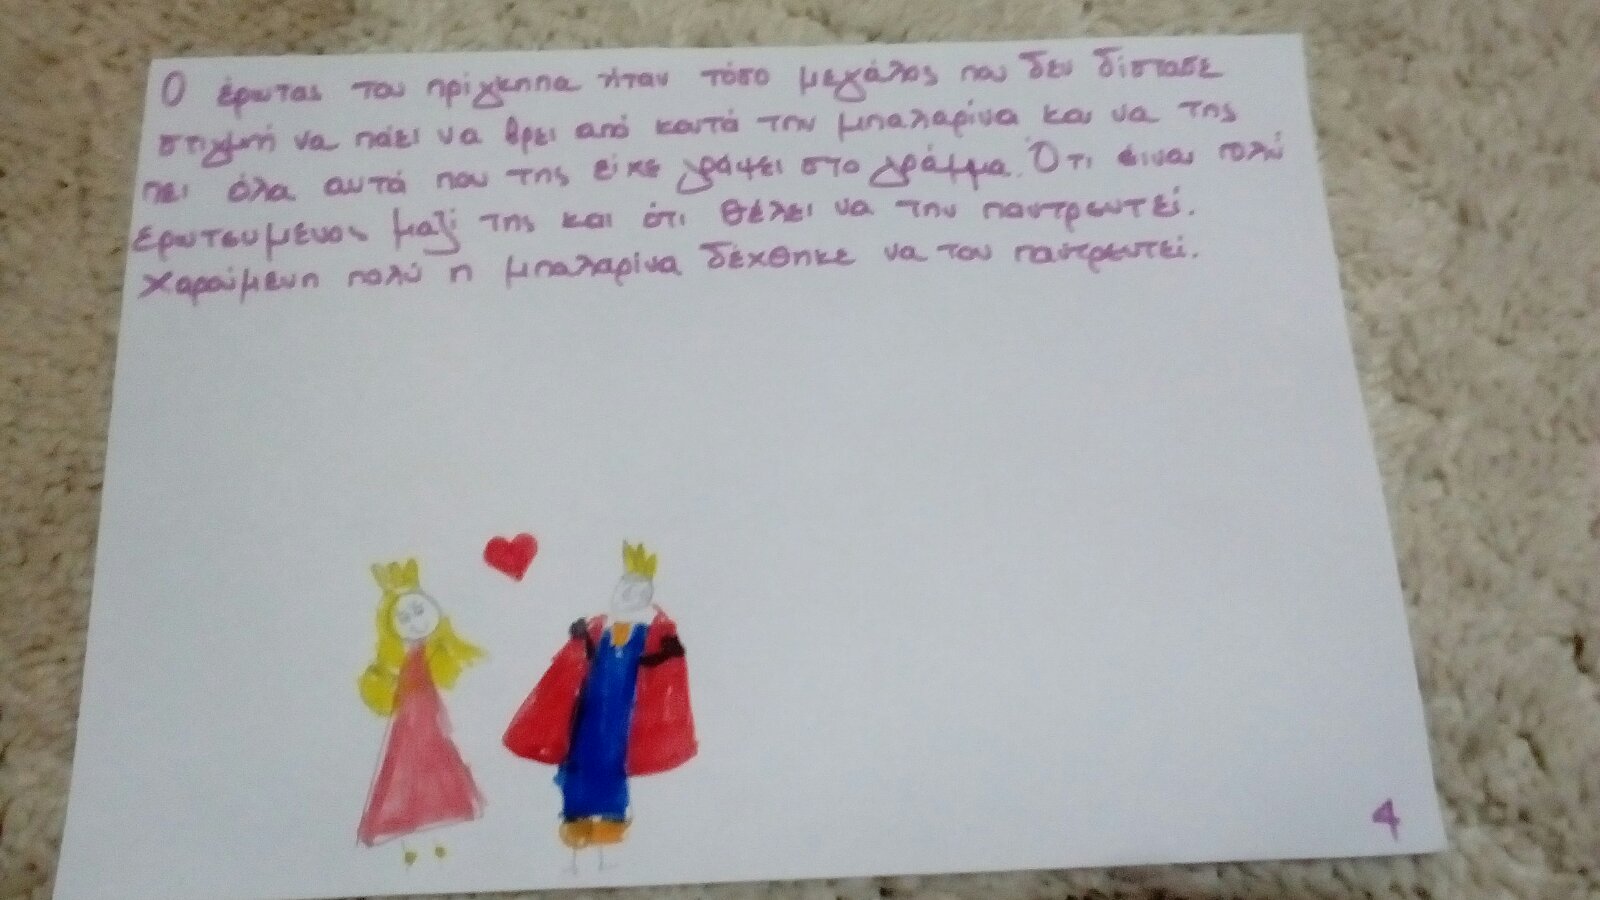 Ο έρωτας του πρίγκηπα ήταν τόσο μεγάλος που δεν δίστασε
στιγμή να πάει να βρει από κοντά την μπαλαρίνα και να της
πει όλα αυτά που της είχε γράψει στο γράμμα. Ότι είναι πολύ
ερωτευμένος μαζί της και ότι θέλει να την παντρευτεί.
Χαρούμενη πολύ η μπαλαρίνα δέχθηκε να τον παντρευτεί.
4